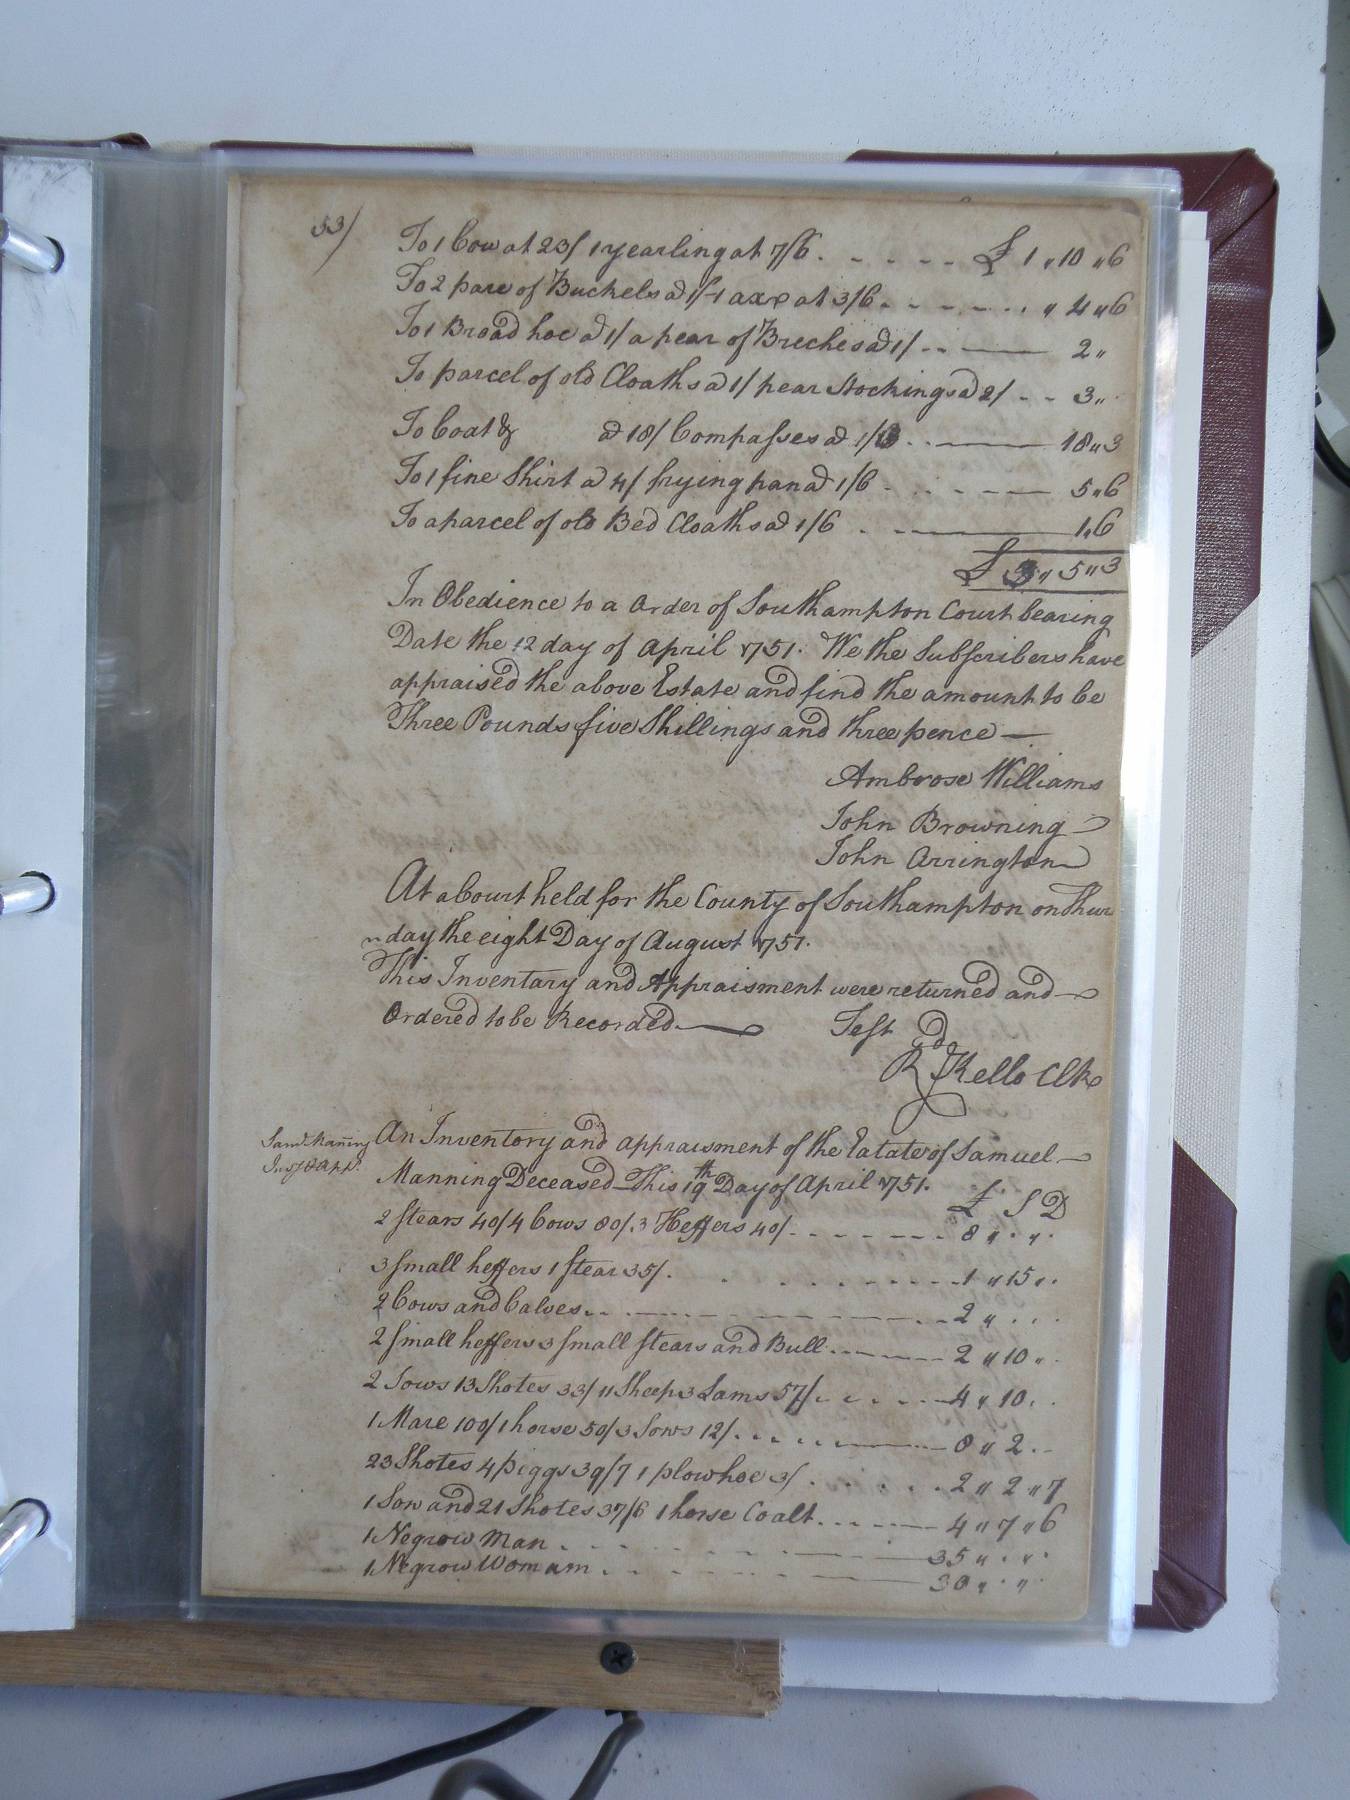 53/
To 1 Cow at 23/ 1 yearling at 7/6 . - - - - - £ 1 " 10 " 6
To 2 pare of Buckels a 1/- 1 axe at 3/6 - - - - - " 4 " 6
To 1 Broad hoe a 1/ a pear of Breches a 1/ - - — 2 "
To parcel of old Cloaths a 1/ pear Stockings a 2/ - - 3 "
To Coat & a 18/ Compasses a 1/3 - - — 18 " 3
To 1 fine Shirt a 4/ frying pan a 1/6 - - - - — 5 " 6
To a parcel of old Bed Cloaths a 1/6 . - — 1 " 6
£ 3 " 5 " 3
In Obedience to a Order of Southampton Court bearing
Date the 12 day of April 1751. We the Subscribers have
appraised the above Estate and find the amount to be
Three Pounds five Shillings and three pence —
Ambrose Williams
John Browning
John Arrington
At a Court held for the County of Southampton on Thur
day the eight Day of August 1751.
This Inventory and Appraisment were returned and
Ordered to be Recorded — Test
R Kello Clk
Saml. Maning
Invy & App.
An Inventory and appraisment of the Eatate of Samuel —
Manning Deceased This 19th Day of April 1751. £ S D
2 Stears 40/ 4 Cows 80/ 3 Heffers 40/ - - - - - - 8 " . "
3 Small heffers 1 Stear 35/ . - - - - - 1 " 15 " .
2 Cows and Calves - - — 2 " . . .
2 Small heffers 3 Small Stears and Bull - - — 2 " 10 " .
2 Sows 13 Shotes 33/ 11 Sheep 3 Lams 57/ - - - - 4 " 10 . .
1 Mare 100/ 1 horse 50/ 3 Sows 12/ - - - — 8 " 2 . -
23 Shotes 4 piggs 39/7 1 plow hoe 3/ . - - - - 2 " 2 " 7
1 Sow and 21 Shotes 37/6 1 horse Coalt - - — 4 " 7 " 6
1 Negrow Man . - - - — 35 " . " .
1 Negrow Womam - - - - — 30 " . " .